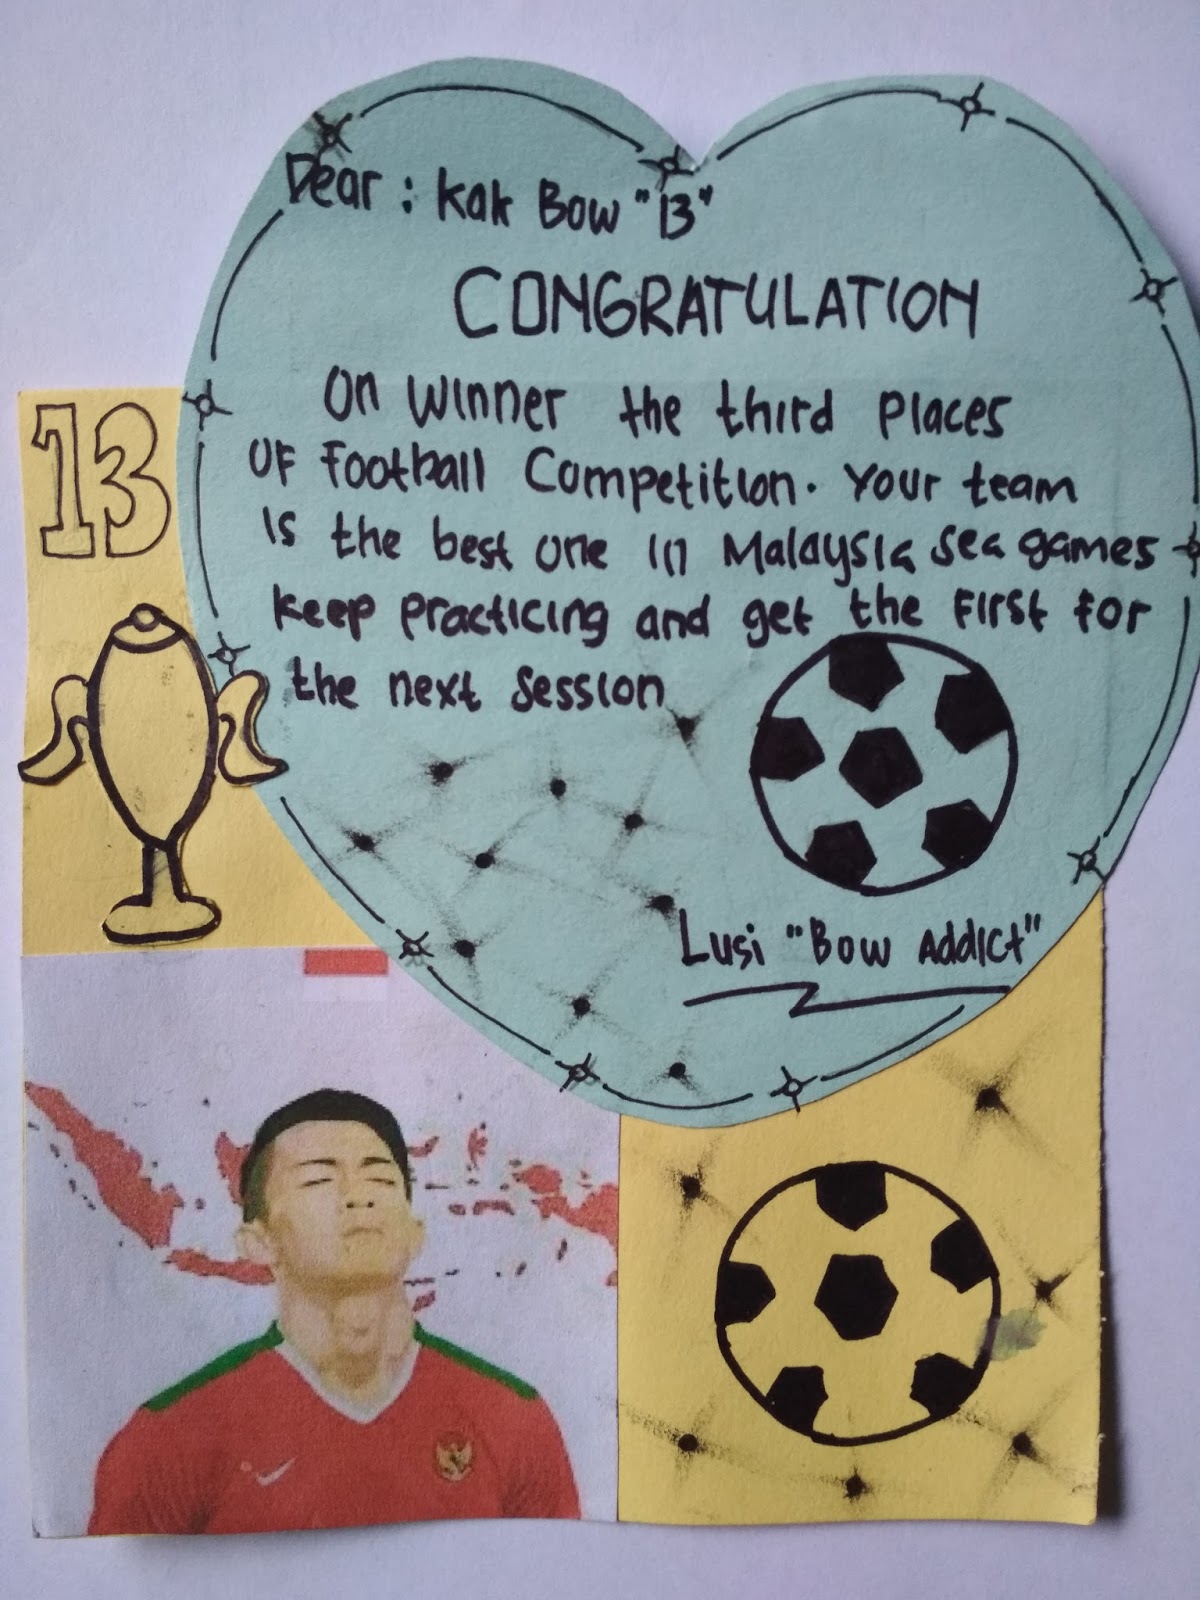 Dear : Kak Bow "13"
CONGRATULATION
On winner the third places
OF Football Competition. Your team
is the best one in Malaysia sea games
keep practicing and get the first for
the next session
13
Lusi "Bow Addict"